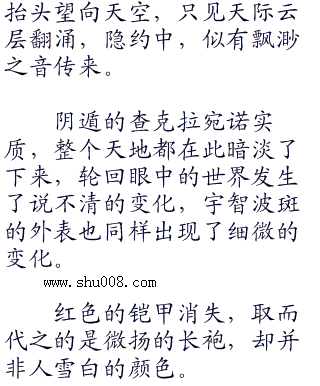 抬头望向天空，只见天际云
层翻涌，隐约中，似有飘渺
之音传来。
阴遁的查克拉宛诺实
质，整个天地都在此暗淡了
下来，轮回眼中的世界发生
了说不清的变化，宇智波斑
的外表也同样出现了细微的
变化。
www.shu008.com
红色的铠甲消失，取而
代之的是微扬的长袍，却并
非人雪白的颜色。